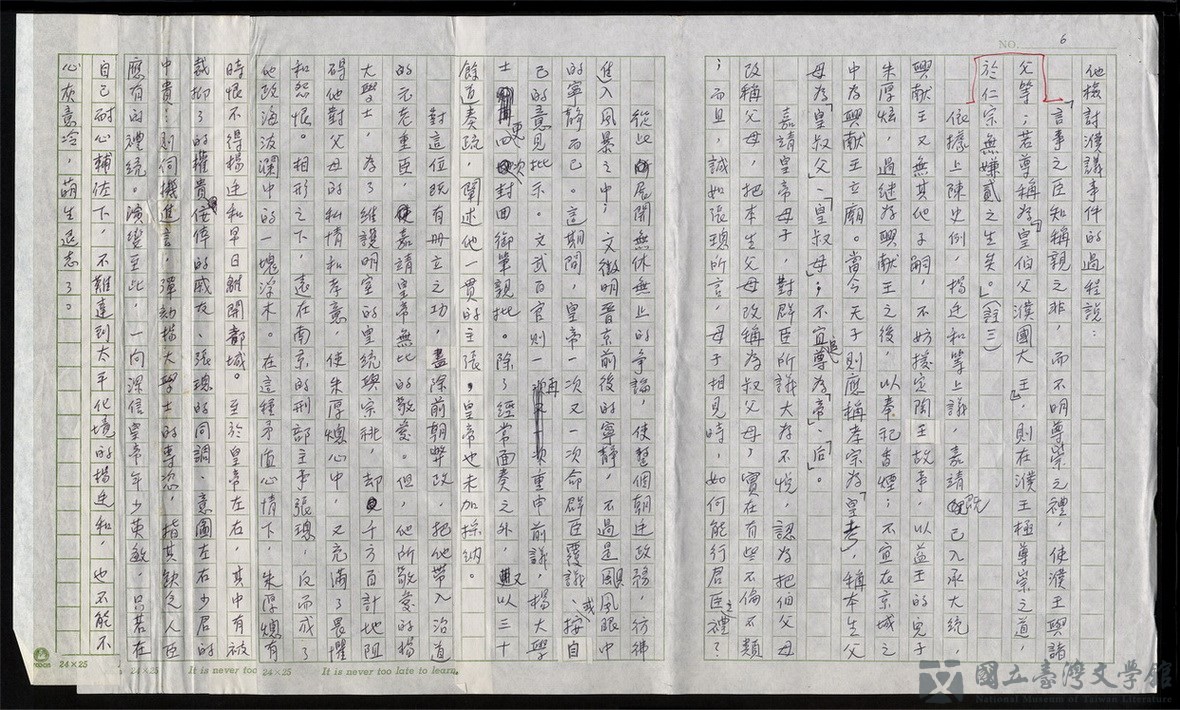 NO. 6
他檢討濮議事件的過程說：
「言事之臣知稱親之非，而不明尊崇之禮，使濮王與諸
父等；若尊稱為『皇伯父濮國大王』，則在濮王極尊崇之道，
於仁宗無嫌貳之失矣。」（註三）
依據上陳史例，楊廷和等上議，嘉靖既已入承大統，
興獻王又無其他子嗣，不妨援定陶王故事，以益王的兒子
朱厚炫，過繼為興獻王之後，以奉祀香煙；不宜在京城
中為興獻王立廟。當今天子則應稱孝宗為「皇考」，稱本生父
母為「皇叔父」、「皇叔母」；不宜追尊為「帝」、「后」。
嘉靖皇帝母子，對群臣所議大為不悅，認為把伯父母
改稱父母，把本生父母改稱為叔父母，實在有些不倫不類
；而且，誠如張璁所言，母子相見時，如何能行君臣之禮？
從此展開無休無止的爭論，使整個朝廷政務，彷彿
進入風暴之中；文徵明晉京前後的寧靜，不過是颶風風眼中
的寧靜而已。這期間，皇帝一次又一次命群臣覆議、或按自
己的意見批示。文武百官則一再重申前議，楊大學
士更四次封回御筆親批。除了經常面奏之外，又以三十
餘道奏疏，闡述他一貫的主張，皇帝也未加採納。
對這位既有冊立之功，盡除前朝弊政，把他帶入治道
的元老重臣，使嘉靖皇帝無比的敬愛。但，他所敬愛的楊
大學士，為了維護明室的皇統與宗祧，却千方百計地阻
碍他對父母的私情和孝意，使朱厚熜心中，又充滿了畏懼
和怨恨。相形之下，遠在南京的刑部主事張璁，反而成了
他政海波瀾中的一塊浮木。在這種矛盾心情下，朱厚熜有
時恨不得楊廷和早日離開都城。至於皇帝左右，其中有被
裁抑了的權貴、倖倖的戚友、張璁的同調、意圖左右少君的
中貴…則伺機進言，彈劾楊大學士的專恣，指其缺乏人臣
應有的禮統。演變至此，一向深信皇帝年少英敏，只若在
自己耐心輔佐下，不難達到太平化境的楊廷和，也不能不
心灰意冷，萌生退志了。
24×25
24×25
It is never too
24×25
It is never too late to learn.
國立臺灣文學館
National Museum of Taiwan Literature